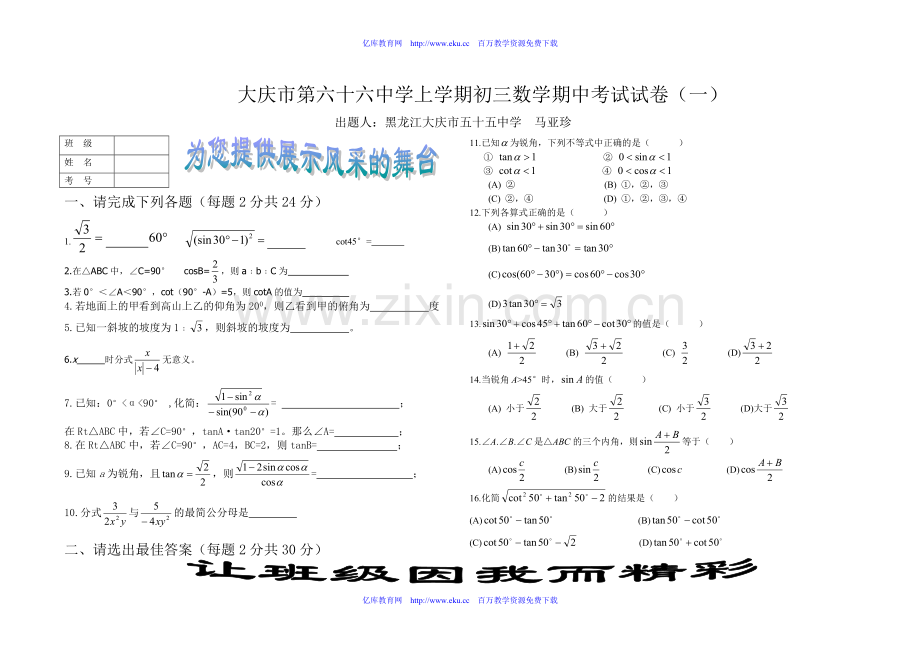 亿库教育网 http://www.eku.cc 百万教学资源免费下载
大庆市第六十六中学上学期初三数学期中考试试卷（一）
出题人：黑龙江大庆市五十五中学 马亚珍
班 级
姓 名
考 号
为您提供展示风采的舞台
一、请完成下列各题（每题2分共24分）
1. √3/2 = ______60° √((sin30°−1)²) = ______ cot45°=______
2.在△ABC中，∠C=90° cosB=2/3，则a∶b∶C为______
3.若0°＜∠A＜90°，cot（90°-A）=5，则cotA的值为______
4.若地面上的甲看到高山上乙的仰角为20⁰，则乙看到甲的俯角为______度
5.已知一斜坡的坡度为1∶√3，则斜坡的坡度为______。
6.x______时分式 x/(|x|−4) 无意义。
7.已知：0°<α<90°,化简：√(1−sin²α)/(−sin(90⁰−α)) = ______；
在Rt△ABC中，若∠C=90°，tanA·tan20°=1。那么∠A=______；
8.在Rt△ABC中，若∠C=90°，AC=4，BC=2，则tanB=______；
9.已知a为锐角，且tanα=√2/2，则√(1−2sinαcosα)/cosα=______；
10.分式 3/(2x²y) 与 5/(−4xy²) 的最简公分母是______
二、请选出最佳答案（每题2分共30分）
11.已知α为锐角，下列不等式中正确的是（ ）
① tanα>1 ② 0<sinα<1
③ cotα<1 ④ 0<cosα<1
(A) ② (B) ①，②，③
(C) ②，④ (D) ①，②，③，④
12.下列各算式正确的是（ ）
(A) sin30°+sin30°=sin60°
(B)tan60°−tan30°=tan30°
(C)cos(60°−30°)=cos60°−cos30°
(D)3tan30°=√3
13.sin30°+cos45°+tan60°−cot30°的值是（ ）
(A) (1+√2)/2 (B) (√3+√2)/2 (C) 3/2 (D)(√3+2)/2
14.当锐角A>45°时，sinA的值（ ）
(A) 小于√2/2 (B) 大于√2/2 (C) 小于√3/2 (D)大于√3/2
15.∠A.∠B.∠C是△ABC的三个内角，则sin (A+B)/2等于（ ）
(A)cos c/2 (B)sin c/2 (C)cos c (D)cos (A+B)/2
16.化简√(cot²50°+tan²50°−2)的结果是（ ）
(A)cot50°−tan50° (B)tan50°−cot50°
(C)cot50°−tan50°−√2 (D)tan50°+cot50°
www.zixin.com.cn
让班级因我而精彩
亿库教育网 http://www.eku.cc 百万教学资源免费下载